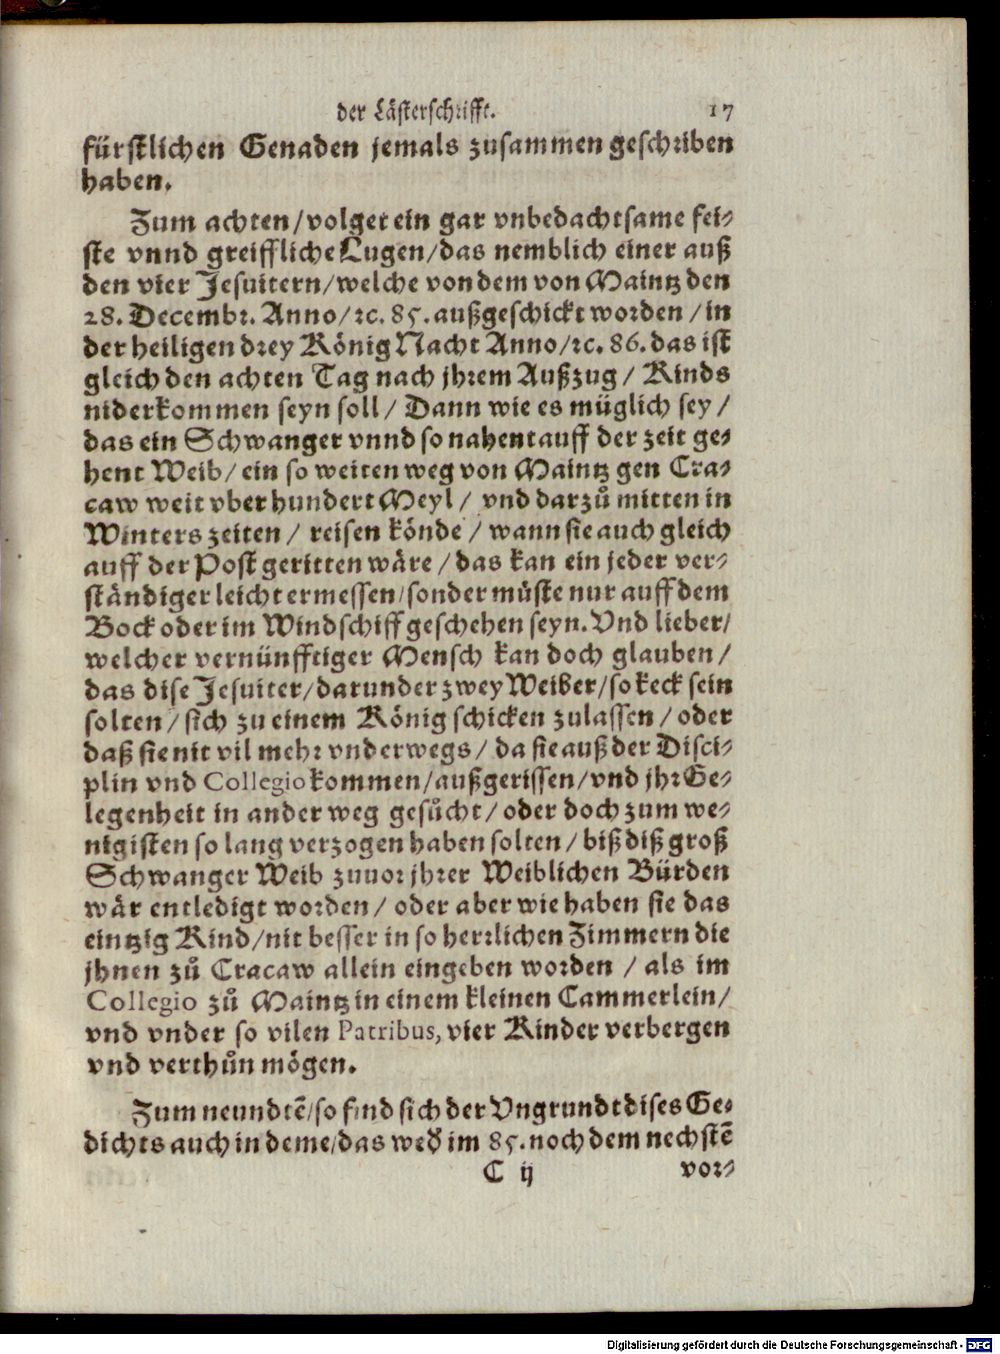 der Lästerschrifft. 17
fürstlichen Genaden jemals zusammen geschriben
haben.
Zum achten/volget ein gar vnbedachtsame fei-
ste vnnd greiffliche Lugen/das nemblich einer auß
den vier Jesuitern/welche von dem von Maintz den
28. Decembr. Anno/ꝛc. 85. außgeschickt worden/in
der heiligen drey König Nacht Anno/ꝛc. 86. das ist
gleich den achten Tag nach jhrem Außzug/ Kinds
niderkommen seyn soll/ Dann wie es müglich sey/
das ein Schwanger vnnd so nahent auff der zeit ge-
hent Weib/ ein so weiten weg von Maintz gen Cra-
caw weit vber hundert Meyl/ vnd darzů mitten in
Winters zeiten/ reisen könde/ wann sie auch gleich
auff der Post geritten wäre/ das kan ein jeder ver-
ständiger leicht ermessen/sonder müste nur auff dem
Bock oder im Windschiff geschehen seyn. Vnd lieber/
welcher vernünfftiger Mensch kan doch glauben/
das dise Jesuiter/darunder zwey Weiber/so keck sein
solten/ sich zu einem König schicken zulassen/ oder
daß sie nit vil mehr vnderwegs/ da sie auß der Disci-
plin vnd Collegio kommen/außgerissen/vnd jhr Ge-
legenheit in ander weg gesůcht/ oder doch zum we-
nigisten so lang verzogen haben solten/ biß diß groß
Schwanger Weib zuuor jhrer Weiblichen Bürden
wär entledigt worden/ oder aber wie haben sie das
eintzig Kind/nit besser in so herrlichen Zimmern die
jhnen zů Cracaw allein eingeben worden/ als im
Collegio zů Maintz in einem kleinen Cammerlein/
vnd vnder so vilen Patribus, vier Kinder verbergen
vnd verthůn mögen.
Zum neundtē/so find sich der Vngrundt dises Ge-
dichts auch in deme/das wed im 85. noch dem nechstē
C ij vor-
Digitalisierung gefördert durch die Deutsche Forschungsgemeinschaft - DFG